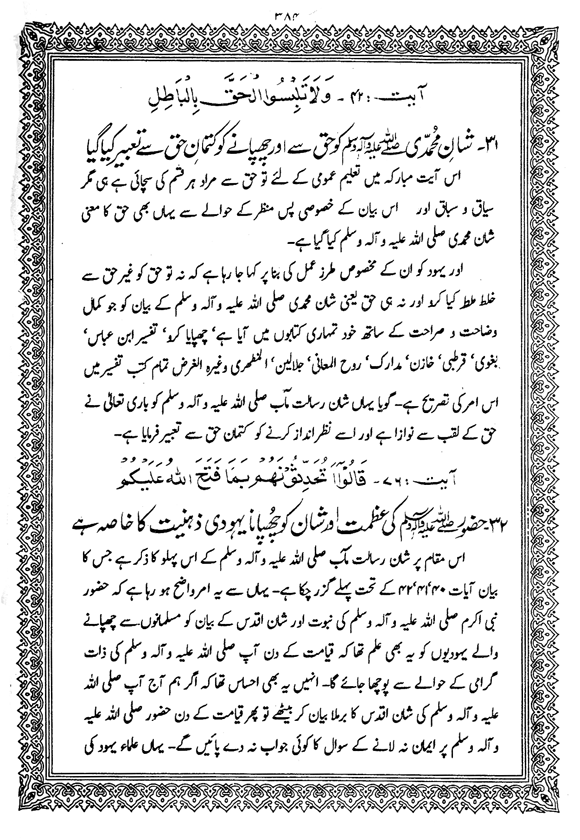 ۳۸۴
آیت :۴۲ - وَلَا تَلْبِسُوا الْحَقَّ بِالْبَاطِلِ
۳۱- شانِ محمدی ﷺ کو حق سے اور چھپانے کو کتمانِ حق سے تعبیر کیا گیا
اس آیت مبارکہ میں تعلیم عمومی کے لئے تو حق سے مراد ہر قسم کی سچائی ہے ہی مگر
سیاق و سباق اور اس بیان کے خصوصی پس منظر کے حوالے سے یہاں بھی حق کا معنی
شان محمدی صلی اللہ علیہ و آلہ وسلم کیا گیا ہے۔
اور یہود کو ان کے مخصوص طرز عمل کی بنا پر کہا جا رہا ہے کہ نہ تو حق کو غیر حق سے
خلط ملط کیا کرو اور نہ ہی حق یعنی شان محمدی صلی اللہ علیہ و آلہ وسلم کے بیان کو جو کمال
وضاحت و صراحت کے ساتھ خود تمہاری کتابوں میں آیا ہے‘ چھپایا کرو‘ تفسیر ابن عباس‘
بغوی‘ قرطبی‘ خازن‘ مدارک‘ روح المعانی‘ جلالین‘ المظھری وغیرہ الغرض تمام کتب تفسیر میں
اس امر کی تصریح ہے۔ گویا یہاں شان رسالت مآب صلی اللہ علیہ و آلہ وسلم کو باری تعالیٰ نے
حق کے لقب سے نوازا ہے اور اسے نظر انداز کرنے کو کتمان حق سے تعبیر فرمایا ہے۔
آیت :۷۶- قَالُوْا اَتُحَدِّثُوْنَهُمْ بِمَا فَتَحَ اللهُ عَلَيْكُمْ
۳۲- حضور ﷺ کی عظمت اور شان کو چھپانا یہودی ذہنیت کا خاصہ ہے
اس مقام پر شان رسالت مآب صلی اللہ علیہ و آلہ وسلم کے اس پہلو کا ذکر ہے جس کا
بیان آیات ۴۰‘۴۱‘۴۲ کے تحت پہلے گزر چکا ہے۔ یہاں سے یہ امر واضح ہو رہا ہے کہ حضور
نبی اکرم صلی اللہ علیہ و آلہ وسلم کی نبوت اور شان اقدس کے بیان کو مسلمانوں سے چھپانے
والے یہودیوں کو یہ بھی علم تھا کہ قیامت کے دن آپ صلی اللہ علیہ و آلہ وسلم کی ذات
گرامی کے حوالے سے پوچھا جائے گا۔ انہیں یہ بھی احساس تھا کہ اگر ہم آج آپ صلی اللہ
علیہ و آلہ وسلم کی شان اقدس کا برملا بیان کر بیٹھے تو پھر قیامت کے دن حضور صلی اللہ علیہ
و آلہ وسلم پر ایمان نہ لانے کے سوال کا کوئی جواب نہ دے پائیں گے۔ یہاں علماء یہود کی